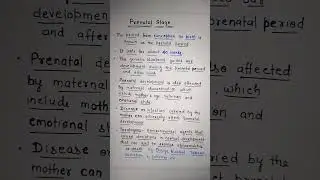 Prenatal Stage
The period from conception to birth is
known as the prenatal period.
It lasts for about 40 weeks.
The genetic blueprint guides our
development during the prenatal period
and after birth.
Prenatal development is also affected
by maternal characteristics, which
include mother's age, nutrition and
emotional state.
Disease or infection carried by the
mother can adversely affect prenatal
development.
environmental agents that
cause deviations in normal development
that can lead to serious abnormalities
or death.
renatal period
and after
Prenatal de
by maternal
include moth
emotional st
Disease or
mother can
so affected
which
and
ed by the